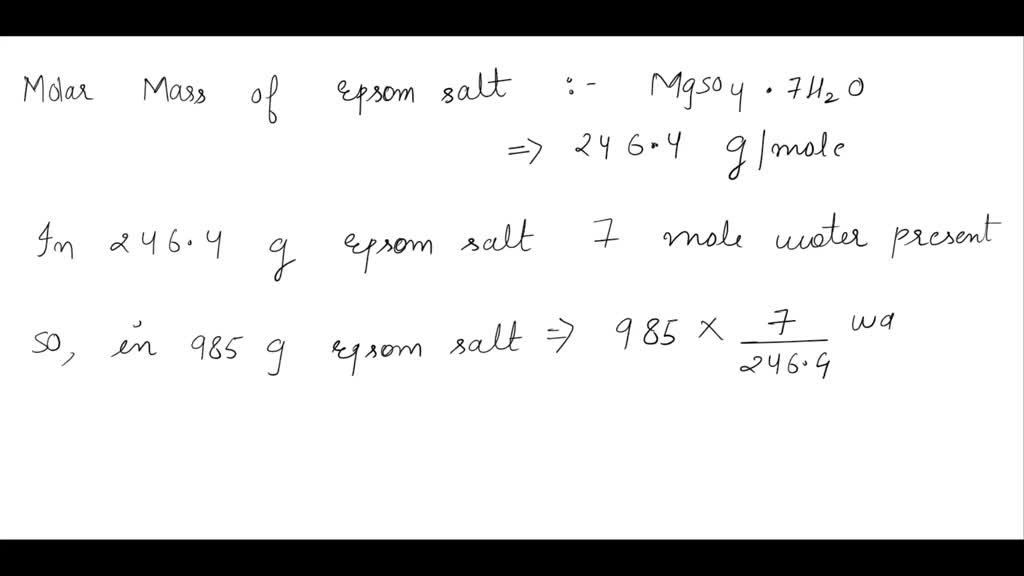 Molar Mass of epsom salt :- MgSO4 . 7H2O
=> 246.4 g/mole
In 246.4 g epsom salt 7 mole water present
so, in 985 g epsom salt => 985 × 7/246.4 wa